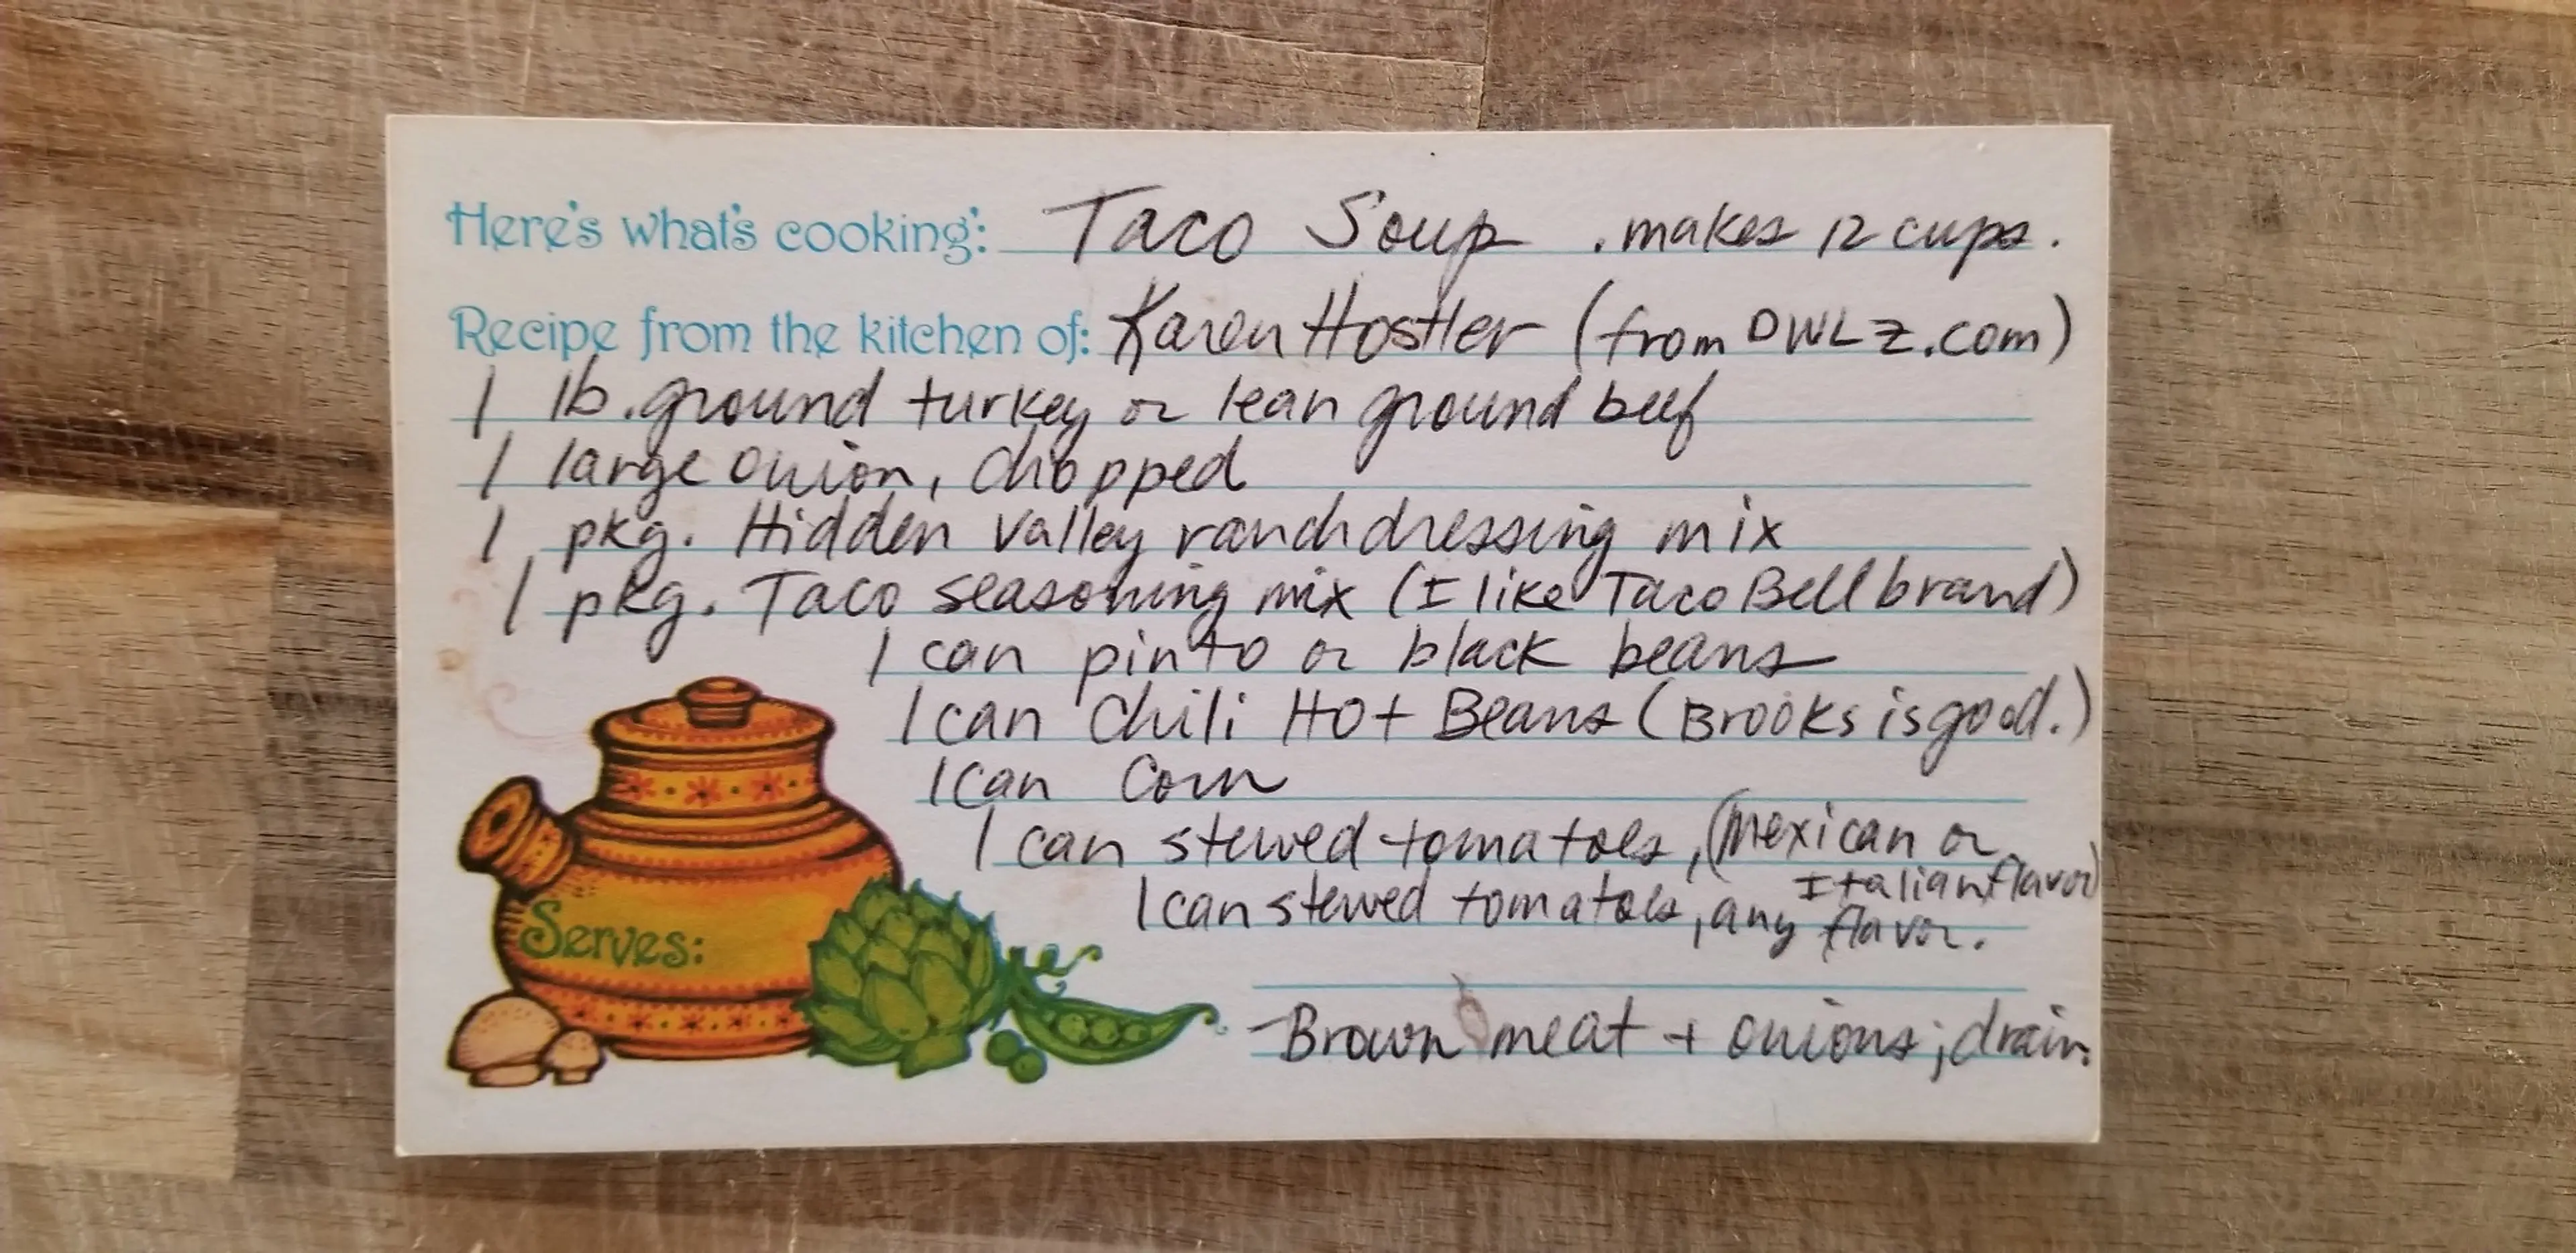 Here's what's cooking: Taco Soup . makes 12 cups.
Recipe from the kitchen of: Karen Hostler (from DWLZ.com)
1 lb. ground turkey or lean ground beef
1 large onion, chopped
1 pkg. Hidden Valley ranch dressing mix
1 pkg. Taco seasoning mix (I like Taco Bell brand)
1 can pinto or black beans
1 can Chili Hot Beans (Brooks is good.)
1 can Corn
1 can stewed tomatoes, (Mexican or
Italian flavor)
1 can stewed tomatoes, any flavor.
Serves:
- Brown meat + onions; drain.